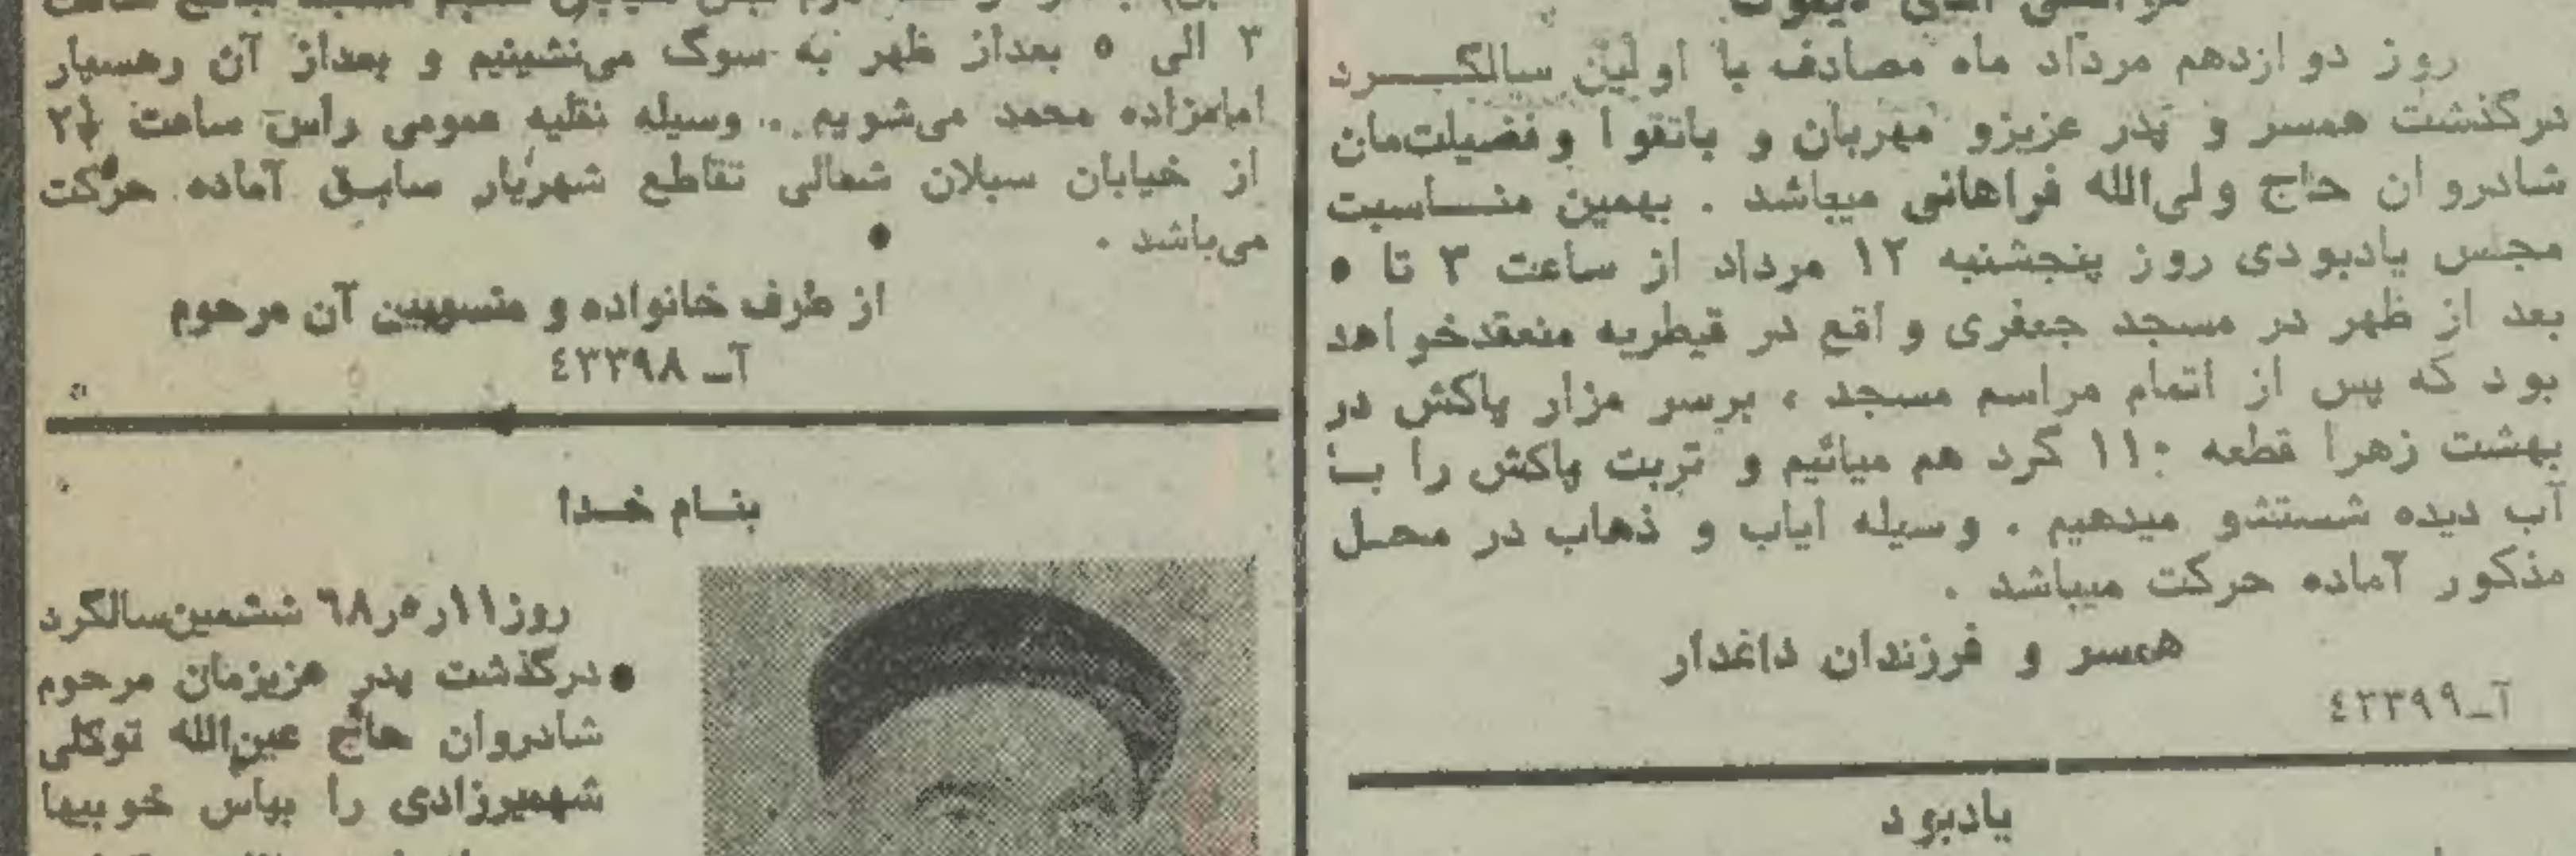 روز دوازدهم مرداد ماه مصادف با اولین سالگرد
درگذشت همسر و پدر عزیزو مهربان و باتقوا وفضیلت‌مان
شادروان حاج ولی‌الله فراهانی میباشد . بهمین مناسبت
مجلس یادبودی روز پنجشنبه ۱۲ مرداد از ساعت ۳ تا ۵
بعد از ظهر در مسجد جعفری واقع در قیطریه منعقدخواهد
بود که پس از اتمام مراسم مسجد ، برسر مزار پاکش در
بهشت زهرا قطعه ۱۱۰ گرد هم میائیم و تربت پاکش را با
آب دیده شستشو میدهیم . وسیله ایاب و ذهاب در محل
مذکور آماده حرکت میباشد .
همسر و فرزندان داغدار
آ‌ـ۴۳۳۹۹
یادبود
۳ الی ۵ بعداز ظهر به سوگ می‌نشینیم و بعداز آن رهسپار
امامزاده محمد می‌شویم . وسیله نقلیه عمومی راس ساعت
از خیابان سبلان شمالی تقاطع شهریار سابق آماده حرکت
می‌باشد .
از طرف خانواده و منسوبین آن مرحوم
آـ ۴۳۳۹۸
بنام خدا
روز۱۱ر۵ر۶۸ ششمین‌سالگرد
درگذشت پدر عزیزمان مرحوم
شادروان حاج عین‌الله توکلی
شهمیرزادی را بپاس خوبیها